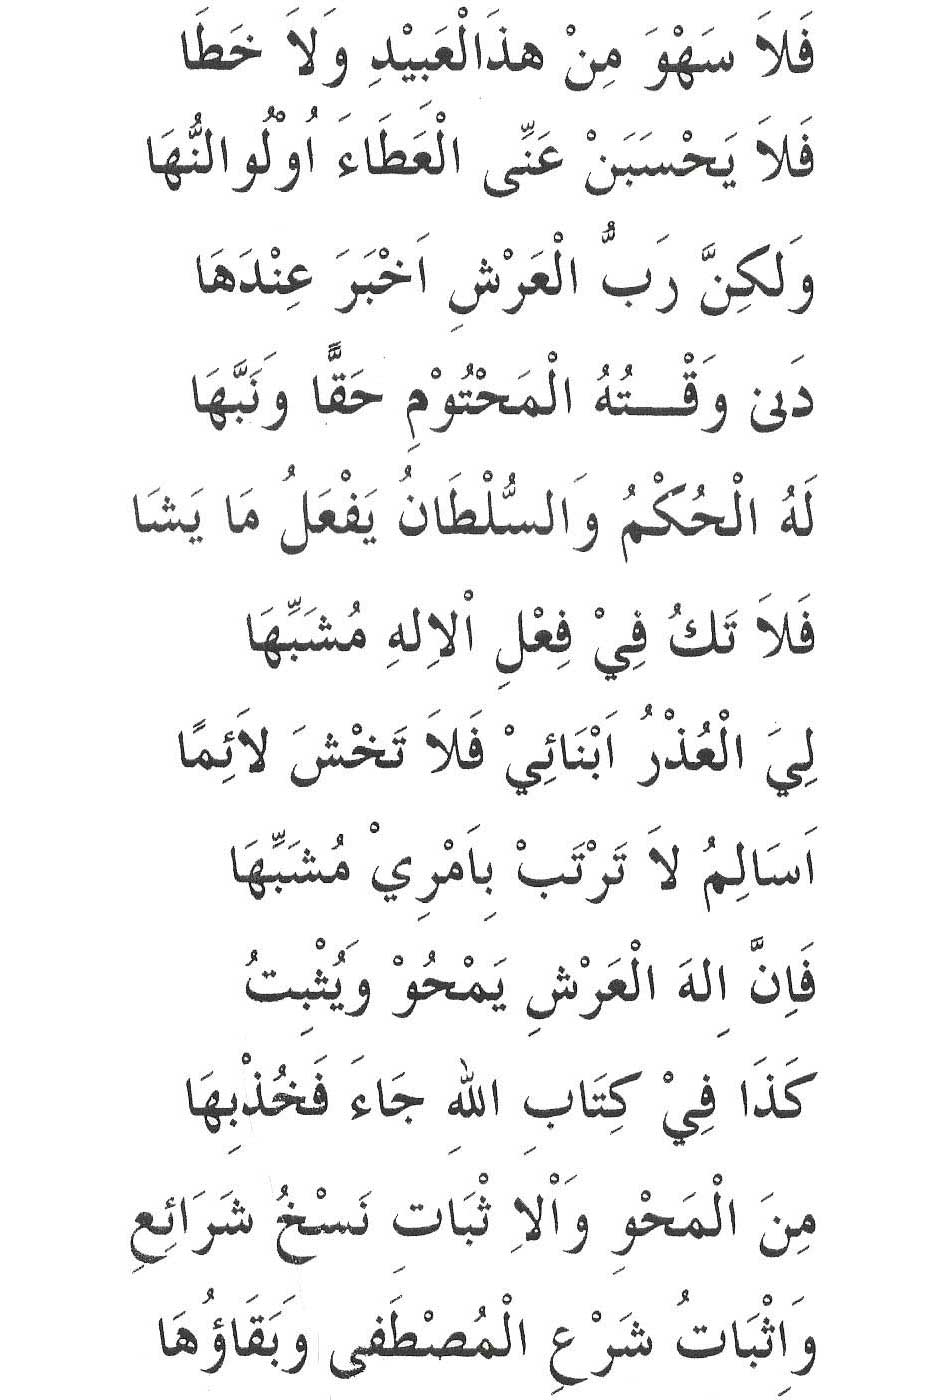 فَلاَ سَهْوَ مِنْ هذَالْعَبِيْدِ وَلاَ خَطَا
فَلاَ يَحْسَبَنْ عَنِّى الْعَطَاءَ اُوْلُوالنُّهَا
وَلكِنَّ رَبُّ الْعَرْشِ اَخْبَرَ عِنْدَهَا
دَنى وَقْـتُهُ الْمَحْتُوْمِ حَقًّا وَنَبَّهَا
لَهُ الْحُكْمُ وَالسُّلْطَانُ يَفْعَلُ مَا يَشَا
فَلاَ تَكُ فِيْ فِعْلِ اْلاِلهِ مُشَبِّهَا
لِيَ الْعُذْرُ اَبْنَائِيْ فَلاَ تَخْشَ لاَئِمًا
اَسَالِمُ لاَ تَرْتَبْ بِاَمْرِيْ مُشَبِّهَا
فَاِنَّ اِلهَ الْعَرْشِ يَمْحُوْ وَيُثْبِتُ
كَذَا فِيْ كِتَابِ اللهِ جَاءَ فَخُذْبِهَا
مِنَ الْمَحْوِ وَاْلاِ ثْبَاتِ نَسْخُ شَرَائِعِ
وَاِثْبَاتُ شَرْعِ الْمُصْطَفى وَبَقَاؤُهَا